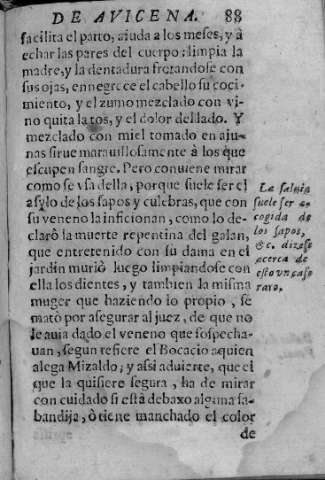 DE AVICENA. 88
facilita el parto, aiuda a los meses, y à
echar las pares del cuerpo; limpia la
madre, y la dentadura fregandose con
sus ojas, ennegrece el cabello su coci-
miento, y el zumo mezclado con vi-
no quita la tos, y el dolor del lado. Y
mezclado con miel tomado en aju-
nas sirue marauillosamente à los que
escupen sangre. Pero conuiene mirar
como se vsa della, porque suele ser el
asylo de los sapos y culebras, que con
su veneno la inficionan, como lo de-
clarò la muerte repentina del galan,
que entretenido con su dama en el
jardin muriò luego limpiandose con
ella los dientes, y tambien la misma
muger que haziendo lo propio, se
matò por asegurar al juez, de que no
le auia dado el veneno que sospecha-
uan, segun refiere el Bocacio aquien
alega Mizaldo; y assi aduierte, que el
que la quisiere segura, ha de mirar
con cuidado si està debaxo alguna sa-
bandija, ò tiene manchado el color
de
La saluia
suele ser a-
cogida de
los sapos,
&c. dizese
acerca de
esto vn caso
raro.